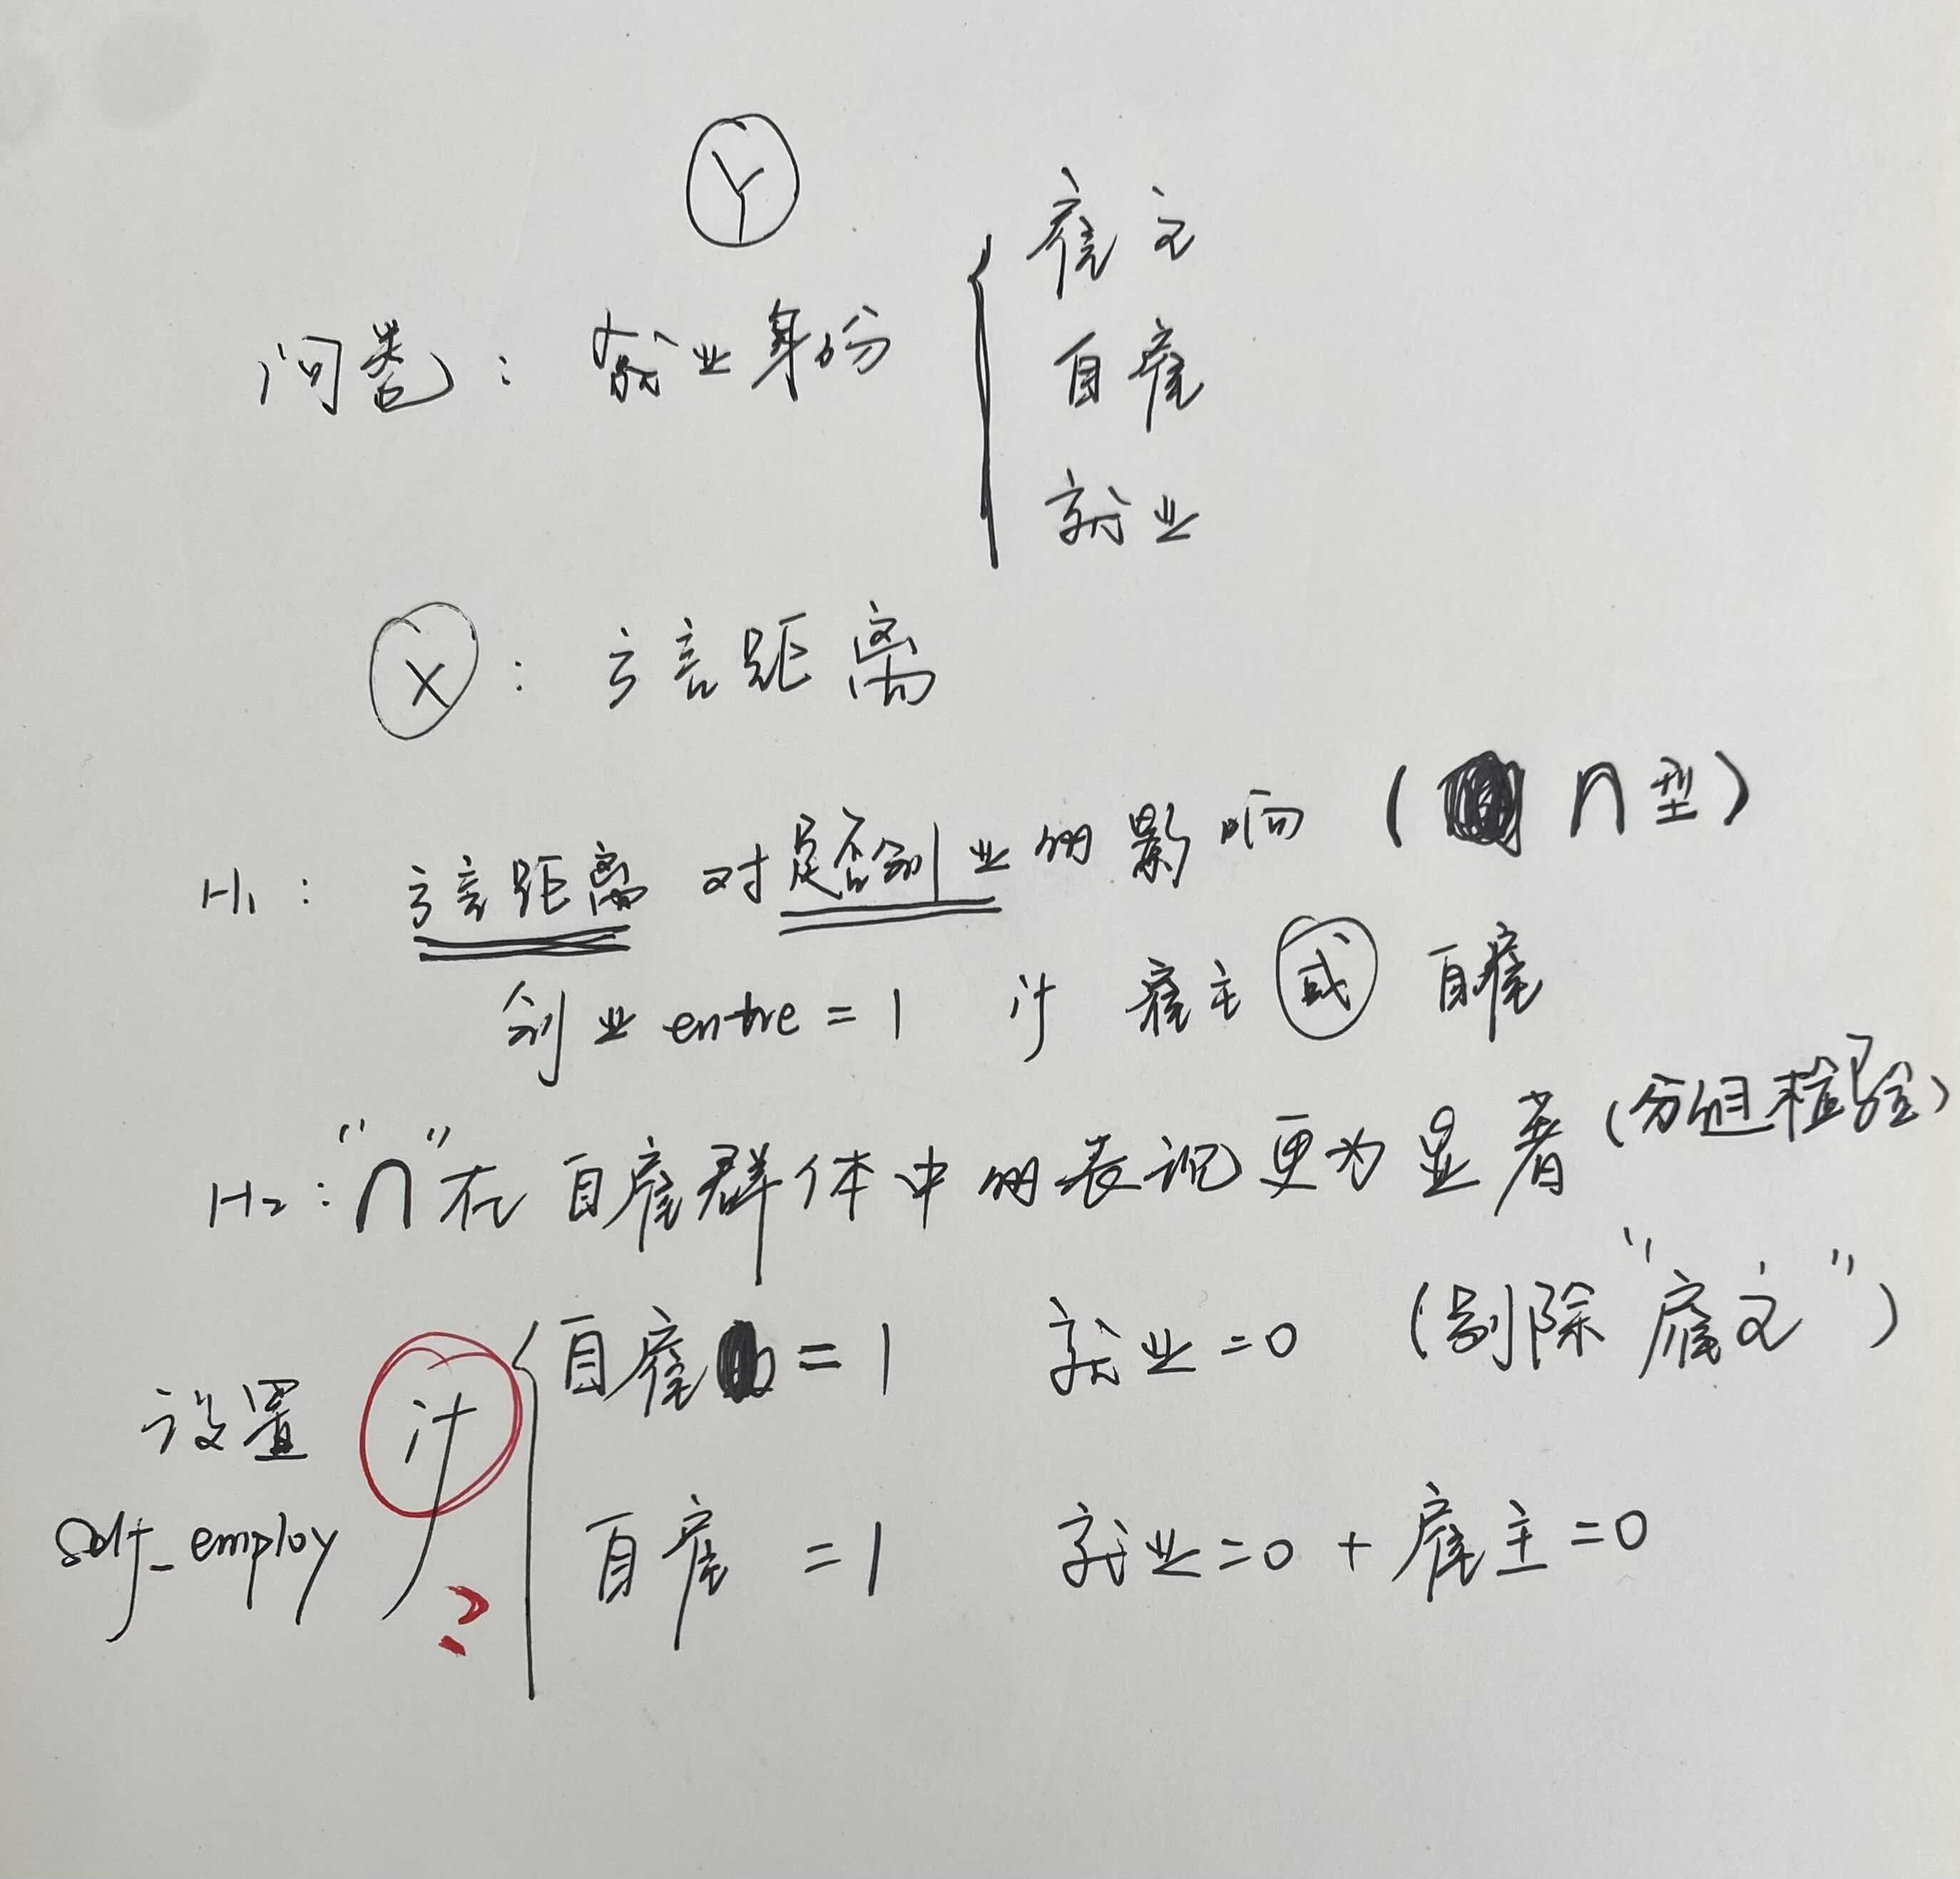 Y
雇主
问卷：就业身份
自雇
就业
X：方言距离
H1：方言距离对是否创业的影响（ n型）
创业entre=1 if 雇主 或 自雇
H2："n"在自雇群体中的表现更为显著（分组检验）
自雇=1 就业=0 （剔除"雇主"）
设置 if
self_employ ?
自雇 =1 就业=0 + 雇主=0